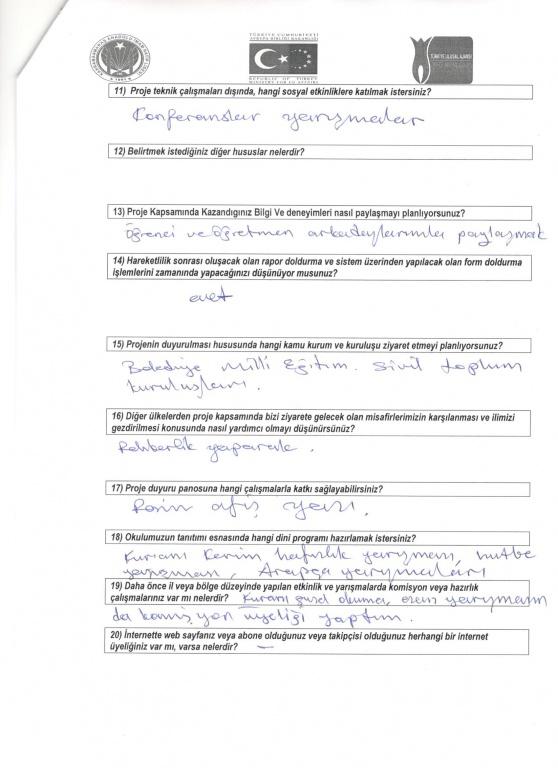 TÜRKİYE CUMHURİYETİ
AVRUPA BİRLİĞİ BAKANLIĞI
REPUBLIC OF TURKEY
MINISTRY FOR EU AFFAIRS
TÜRKİYE ULUSAL AJANSI
11) Proje teknik çalışmaları dışında, hangi sosyal etkinliklere katılmak istersiniz?
Konferanslar yarışmalar
12) Belirtmek istediğiniz diğer hususlar nelerdir?
13) Proje Kapsamında Kazandığınız Bilgi Ve deneyimleri nasıl paylaşmayı planlıyorsunuz?
Öğrenci ve öğretmen arkadaşlarımla paylaşmak
14) Hareketlilik sonrası oluşacak olan rapor doldurma ve sistem üzerinden yapılacak olan form doldurma
işlemlerini zamanında yapacağınızı düşünüyor musunuz?
evet
15) Projenin duyurulması hususunda hangi kamu kurum ve kuruluşu ziyaret etmeyi planlıyorsunuz?
Belediye Milli Eğitim. Sivil toplum
kuruluşları.
16) Diğer ülkelerden proje kapsamında bizi ziyarete gelecek olan misafirlerimizin karşılanması ve ilimizi
gezdirilmesi konusunda nasıl yardımcı olmayı düşünürsünüz?
Rehberlik yaparak.
17) Proje duyuru panosuna hangi çalışmalarla katkı sağlayabilirsiniz?
Resim afiş yazı.
18) Okulumuzun tanıtımı esnasında hangi dini programı hazırlamak istersiniz?
Kuranı Kerim hafızlık yarışması, hutbe
yarışması, Arapça yarışmaları
19) Daha önce il veya bölge düzeyinde yapılan etkinlik ve yarışmalarda komisyon veya hazırlık
çalışmalarınız var mı nelerdir? Kuranı güzel okuma, ezan yarışmasın
da komisyon üyeliği yaptım.
20) İnternette web sayfanız veya abone olduğunuz veya takipçisi olduğunuz herhangi bir internet
üyeliğiniz var mı, varsa nelerdir? –